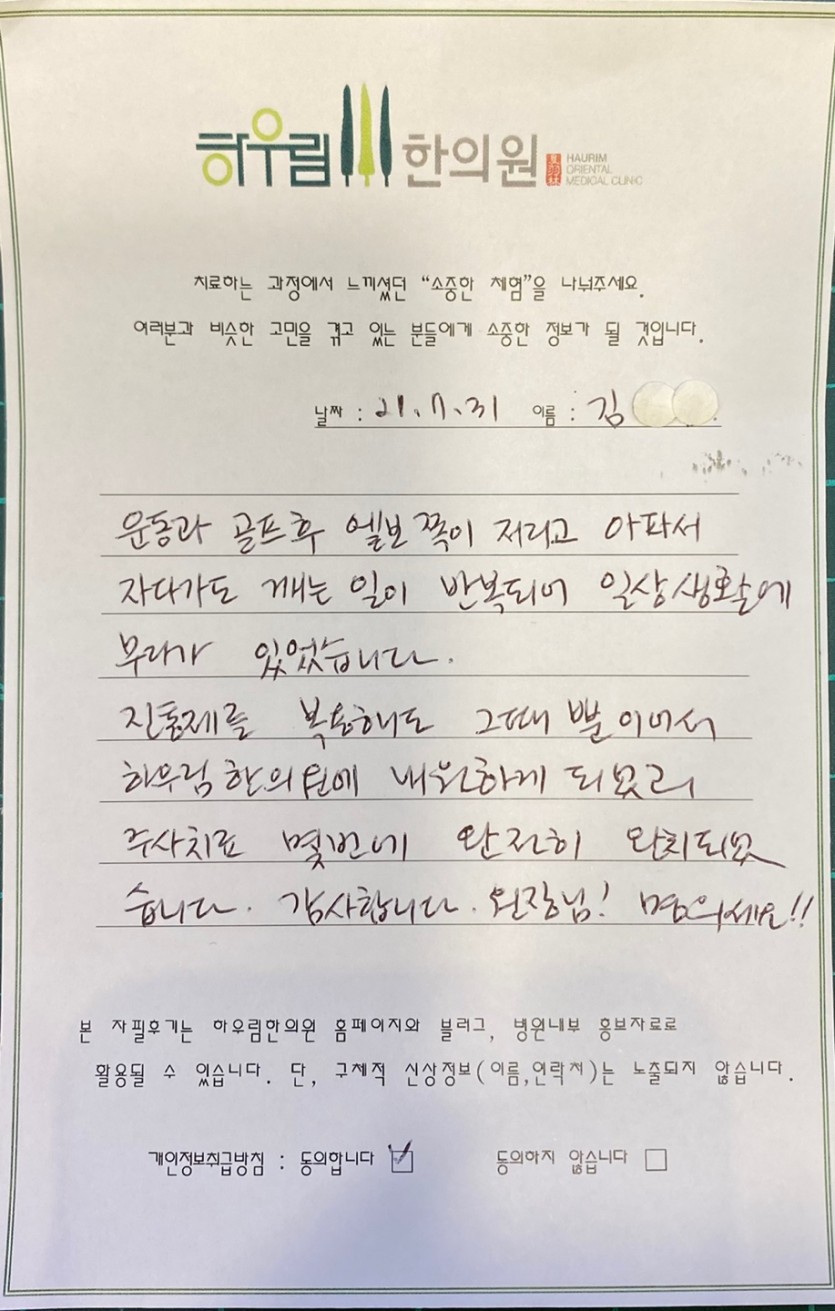 하우림 한의원
HAURIM
ORIENTAL
MEDICAL CLINIC
치료하는 과정에서 느끼셨던 “소중한 체험”을 나눠주세요.
여러분과 비슷한 고민을 겪고 있는 분들에게 소중한 정보가 될 것입니다.
날짜 : 21.7.31 이름 : 김
운동과 골프후 엘보쪽이 저리고 아파서
자다가도 깨는 일이 반복되어 일상생활에
무리가 있었습니다.
진통제를 복용해도 그때 뿐이어서
하우림한의원에 내원하게 되었고
주사치료 몇번에 완전히 완치되었
습니다. 감사합니다. 원장님! 명의세요!!
본 자필후기는 하우림한의원 홈페이지와 블러그, 병원내부 홍보자료로
활용될 수 있습니다. 단, 구체적 신상정보(이름,연락처)는 노출되지 않습니다.
개인정보취급방침 : 동의합니다 동의하지 않습니다